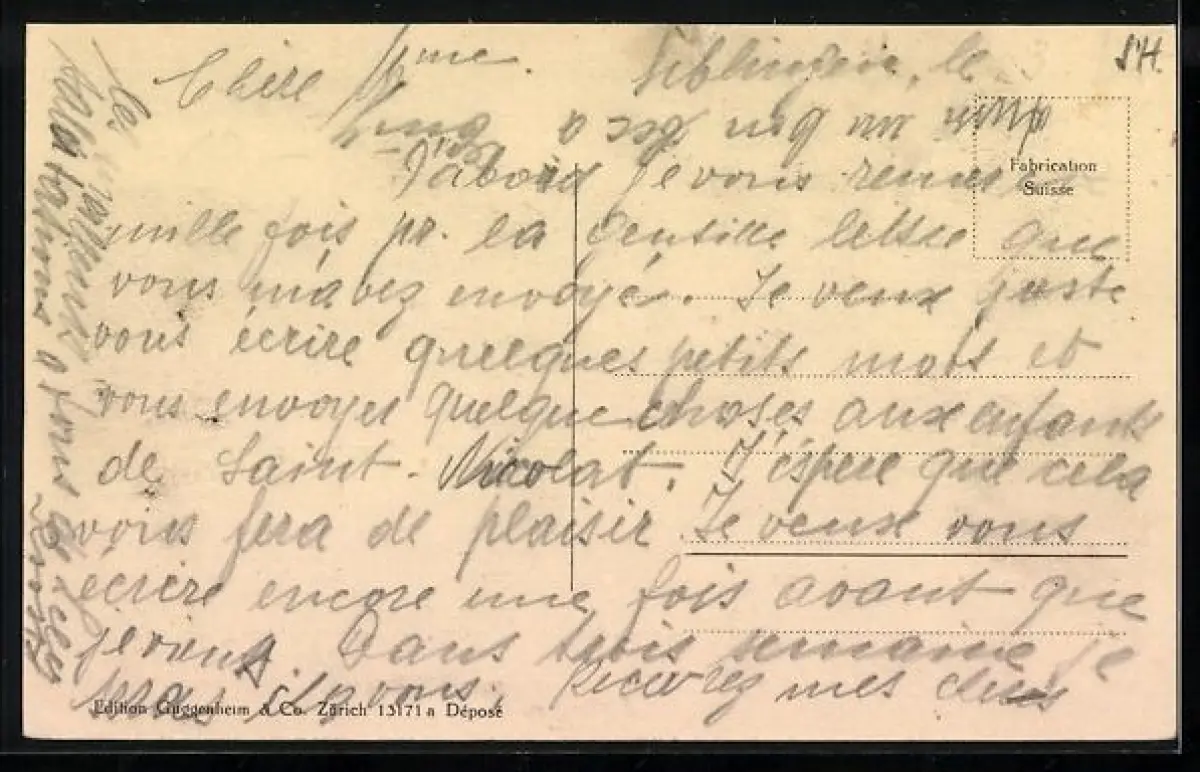 Chère Mme. Siblingen, le
D'abord je vous remersi
mille fois pr. la gentille lettre que
vous m'avez envoyé. Je veux juste
vous écrire quelques petits mots et
vous envoyer quelque choses aux enfants
de Saint-Nicolas. J'éspère que cela
vous fera de plaisir. Je veux vous
écrire encore une fois avant que
je viens. Dans trois semaine je
serai vous. Recevrez mes chers
S'H.
Fabrication
Suisse
Edition Guggenheim & Co. Zürich 13171 a Déposé